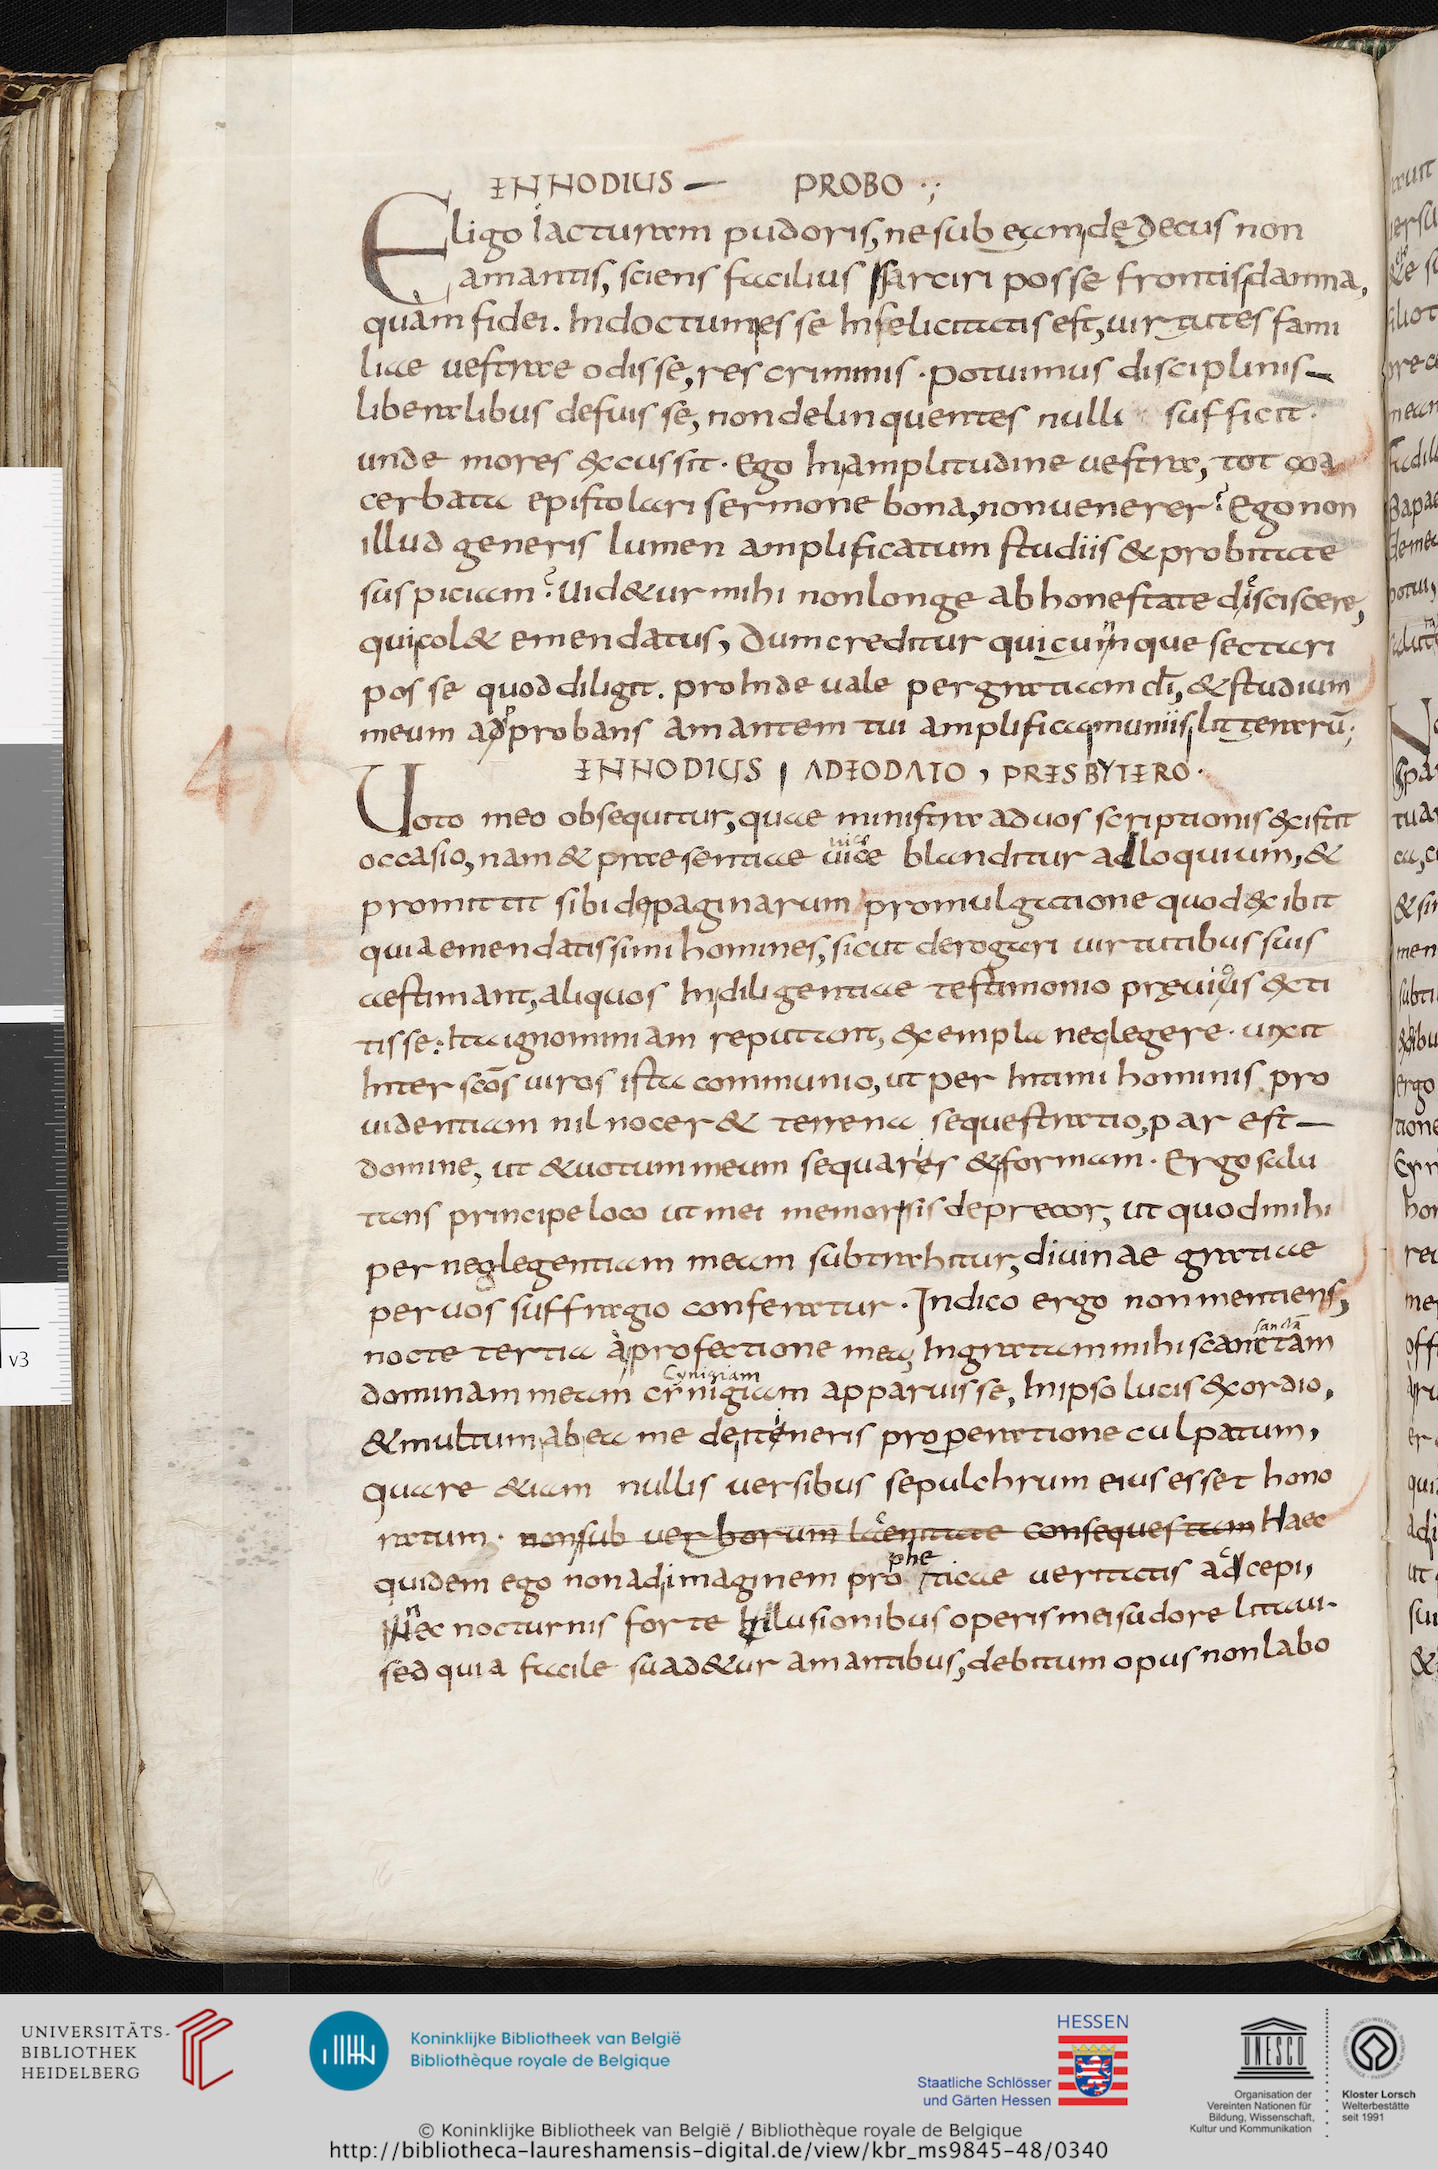 ENNODIUS — PROBO .;
Eligo iacturam pudoris, ne sub ea mide decus non
amantis, sciens facilius sarciri posse frontis damna,
quàm fidei. Indoctum esse Infelicitatis est, uirtutes fami
liae uestrae odisse, res criminis. potuimus disciplinis —
liberalibus defuisse, non delinquentes nulli sufficit.
unde mores &cussit. Ego In amplitudine uestra, tot coa
cerbata epistolari sermone bona, non uenerer? Ego non
illud generis lumen amplificatum studiis & probitate
suspiciam? Uid&ur mihi non longe ab honestate desciscere,
qui col& emendatus, Dum creditur quicunque sectari
posse quod diligit. proInde uale per gratiam di, & studium
meum adprobans amantem tui amplifica muniis litterarū;
ENNODIUS, ADEODATO, PRESBYTERO.
Uoto meo obsequitur, quae ministra ad uos scriptionis &istit
occasio, nam & praesentiae uice blanditur adloquium, &
promittit sibi de paginarum promulgatione quod &ibit
quia emendatissimi homines, sicut derogari uirtutibus suis
aestimant, aliquos Indiligentiae testimonio praeuios &ti
tisse: Ita ignominiam reputant, &empla neclegere. uixit
Inter scōs uiros ista communio, ut per Intimi hominis pro
uidentiam nil nocer& terrena sequestratio, par est —
domine, ut &uotum meum sequaris & formam. Ergo salu
tans principe loco ut mei memor sis deprecor, ut quod mihi
per neglegentiam meam subtrahitur, diuinae gratiae
per uos suffragio conferatur. Indico ergo non mentiens,
nocte tertia à profectione mea, Ingratam mihi sanctam
dominam meam cynigiam apparuisse, In ipso lucis &ordio,
& multum ab ea me de itineris properatione culpatum,
quare &iam nullis uersibus sepulchrum eius esset hono
ratum. non sub uerborum laenitate consequestam Haec
quidem ego non ad imaginem propheticae ueritatis accepi,
nec nocturnis forte Inlusionibus operis mei sudore litaui.
sed quia facile suad&ur amantibus, debitum opus non labo
UNIVERSITÄTS-
BIBLIOTHEK
HEIDELBERG
Koninklijke Bibliotheek van België
Bibliothèque royale de Belgique
HESSEN
Staatliche Schlösser
und Gärten Hessen
UNESCO
Organisation der
Vereinten Nationen für
Bildung, Wissenschaft,
Kultur und Kommunikation
Kloster Lorsch
Welterbestätte
seit 1991
© Koninklijke Bibliotheek van België / Bibliothèque royale de Belgique
http://bibliotheca-laureshamensis-digital.de/view/kbr_ms9845-48/0340
v3